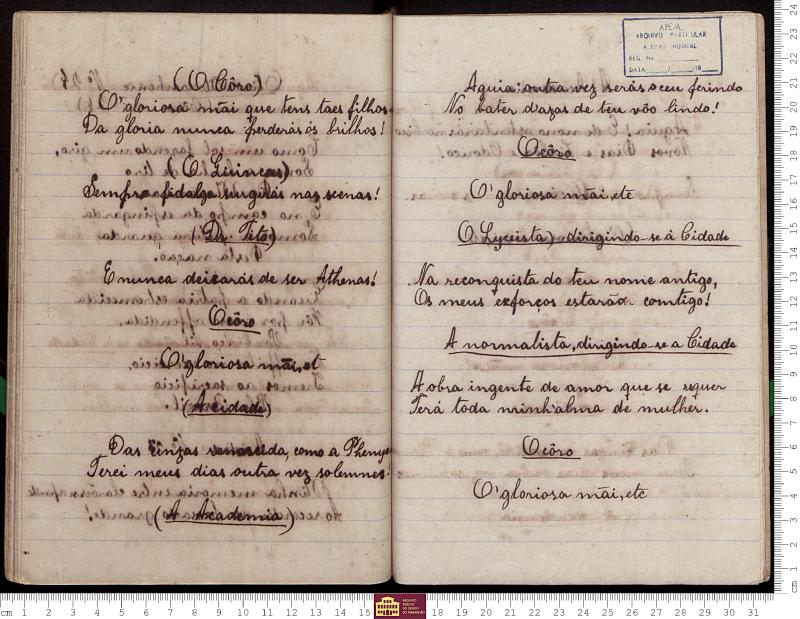 (O Côro)
O' gloriosa mãi que tens taes filhos
Da gloria nunca perderás os brilhos!
(O Luincas)
Sempre fidalga surgirás nas scenas!
(Dr. Tetó)
E nunca deixarás de ser Athenas!
O côro
O' gloriosa mãi, et
(A cidade)
Das cinzas renascida, como a Phenyx
Terei meus dias outra vez solemnes
(A Academia)
APEM
ARQUIVO PARTICULAR
ACERVO MUSICAL
REG. No
DATA / /19
Aguia: outra vez serás o ceu ferindo
No bater d'azas de teu vôo lindo!
O côro
O' gloriosa mãi, etc
O Lyceista) dirigindo-se à Cidade
Na reconquista do teu nome antigo,
Os meus exforços estarão comtigo!
A normalista, dirigindo-se a Cidade
A obra ingente de amor que se requer
Terá toda minh'alma de mulher.
O côro
O' gloriosa mãi, etc
ARQUIVO PÚBLICO DO ESTADO DO MARANHÃO
cm 1 2 3 4 5 6 7 8 9 10 11 12 13 14 15 17 18 19 20 21 22 23 24 25 26 27 28 29 30 31
cm 1 2 3 4 5 6 7 8 9 10 11 12 13 14 15 16 17 18 19 20 21 22 23 24